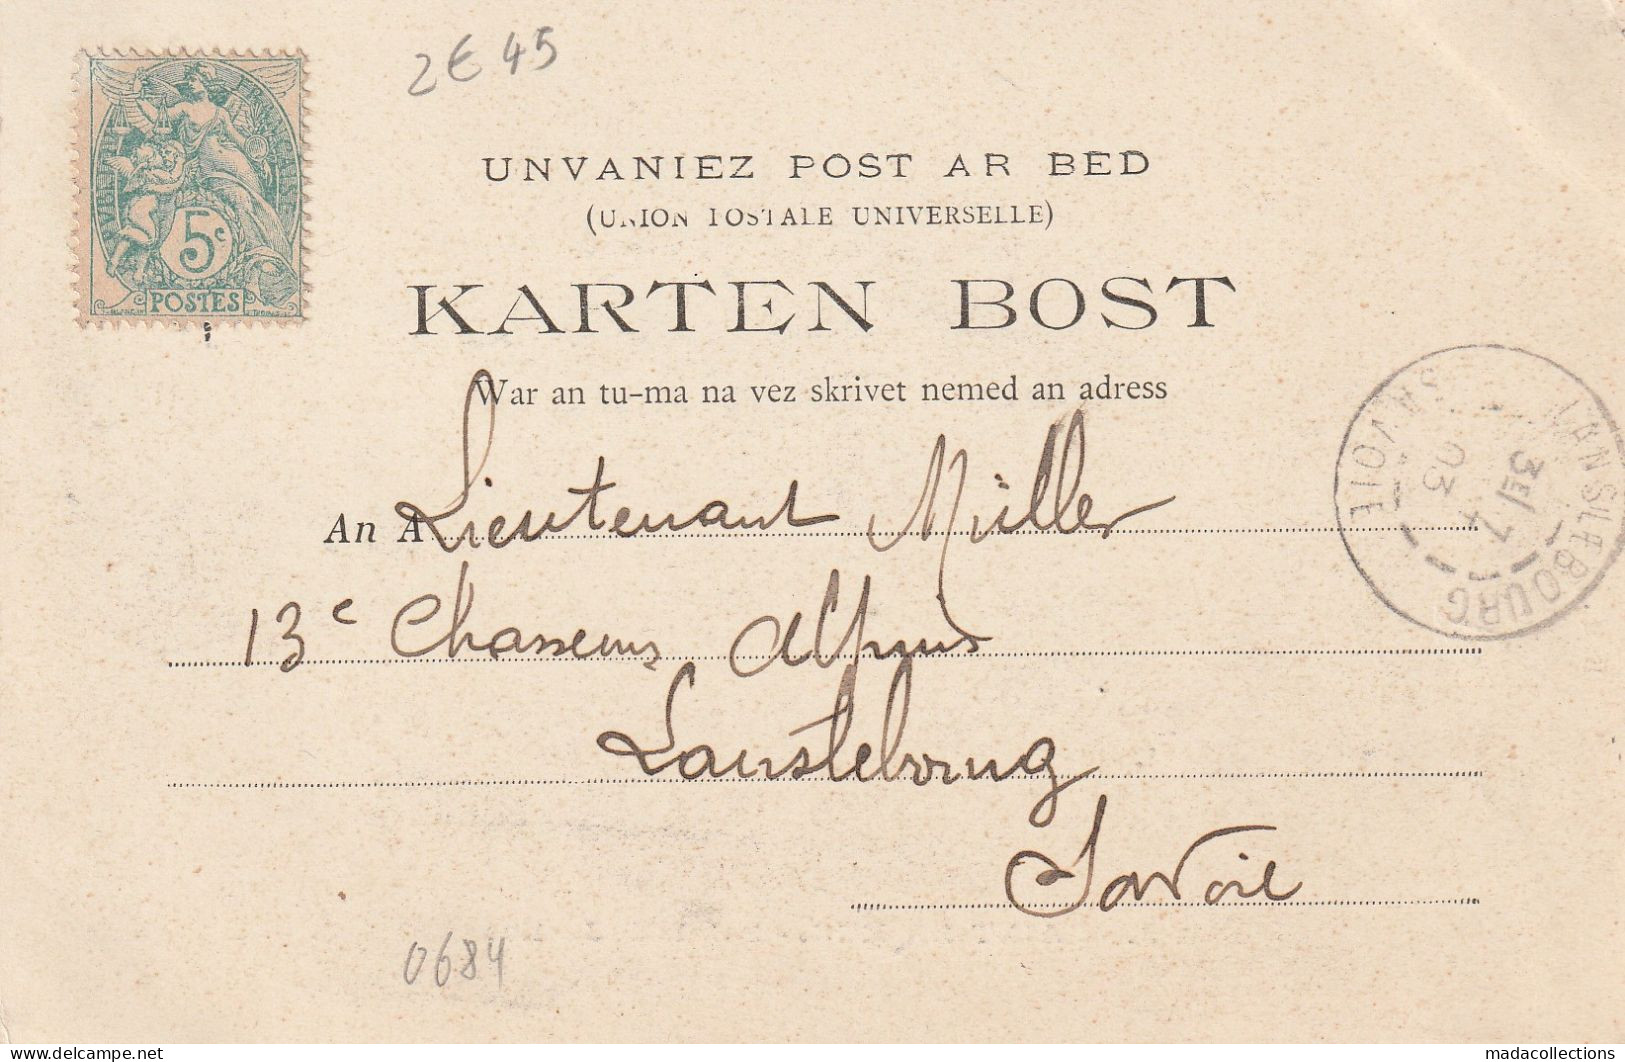 2€45
5c
POSTES
UNVANIEZ POST AR BED
(UNION POSTALE UNIVERSELLE)
KARTEN BOST
War an tu-ma na vez skrivet nemed an adress
An A Lieutenant Müller
13e Chasseurs Alpins
Lanslebourg
Savoie
LANSLEBOURG
SAVOIE
03
0684
madacollections